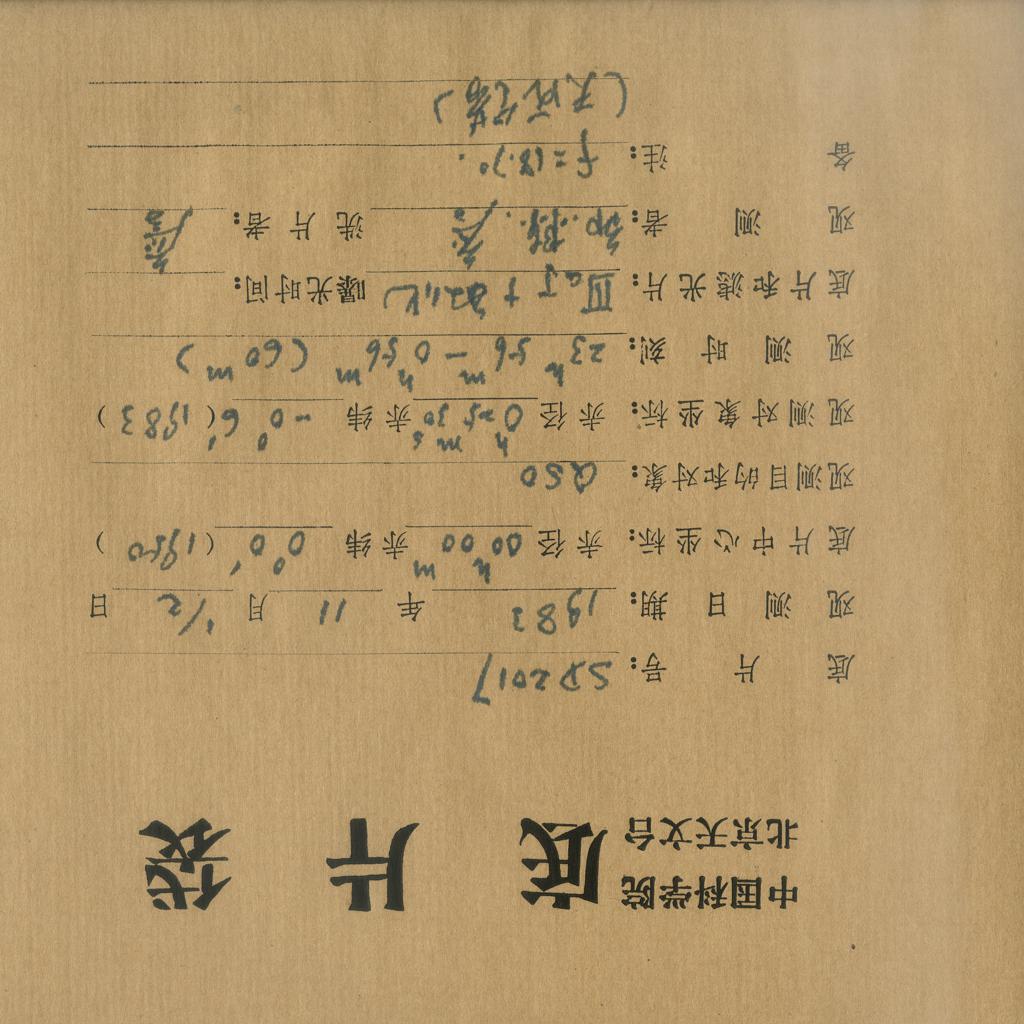 中国科学院
北京天文台
底片袋
底片号: SP2017
观测日期: 1983年11月1/2日
底片中心坐标: 赤径 00ʰ00ᵐ 赤纬 0°0′ (1950)
观测目的和对象: QSO
观测对象坐标: 赤径 0ʰ 赤纬 -0°6′ (1983)
观测时刻: 23ʰ56ᵐ-0ʰ56ᵐ (60ᵐ)
底片和滤光片: ⅢaJ + 曝光时间:
观测者: 洗片者:
备注: f=18.7°.